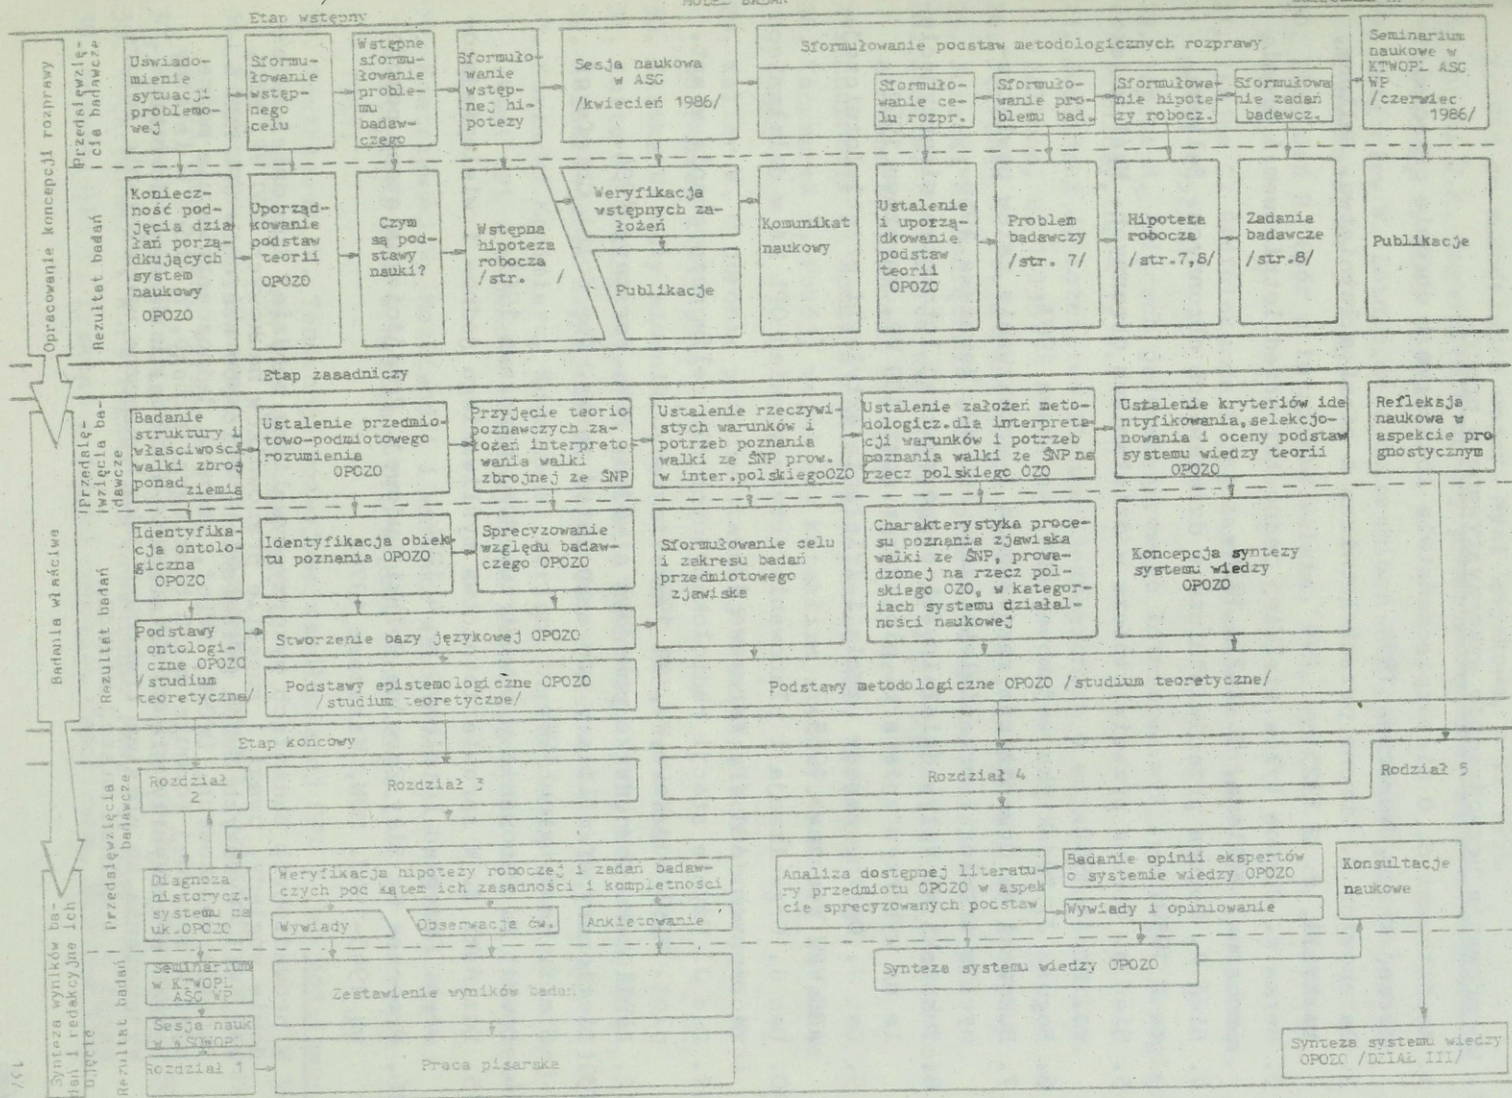 MODEL BADAŃ
Etap wstępny
Opracowanie koncepcji rozprawy
Przedsięwzię-
cia badawcze
Uświado-
mienie
sytuacji
problemo-
wej
Sformu-
łowanie
wstęp-
nego
celu
Wstępne
sformu-
łowanie
proble-
mu
badaw-
czego
Sformuło-
wanie
wstęp-
nej hi-
potezy
Sesja naukowa
w ASG
/kwiecień 1986/
Sformułowanie podstaw metodologicznych rozprawy
Sformuło-
wanie ce-
lu rozpr.
Sformuło-
wanie pro-
blemu bad.
Sformułowa-
nie hipote-
zy robocz.
Sformułowa
nie zadań
badawcz.
Seminarium
naukowe w
KTWOPL ASG
WP
/czerwiec
1986/
Rezultat badań
Koniecz-
ność pod-
jęcia dzia
łań porzą-
dkujących
system
naukowy
OPOZO
Uporząd-
kowanie
podstaw
teorii
OPOZO
Czym
są pod-
stawy
nauki?
Wstępna
hipoteza
robocza
/str. /
Weryfikacja
wstępnych za-
łożeń
Publikacje
Komunikat
naukowy
Ustalenie
i uporzą-
dkowanie
podstaw
teorii
OPOZO
Problem
badawczy
/str. 7/
Hipoteza
robocza
/str.7,8/
Zadania
badawcze
/str.8/
Publikacje
Etap zasadniczy
Badania właściwe
Przedsię-
wzięcia ba-
dawcze
Badanie
struktury i
właściwości
walki zbroj
ponad
ziemią
Ustalenie przedmio-
towo-podmiotowego
rozumienia
OPOZO
Przyjęcie teorio
poznawczych za-
łożeń interpreto
wania walki
zbrojnej ze ŚNP
Ustalenie rzeczywi-
stych warunków i
potrzeb poznania
walki ze ŚNP prow.
w inter.polskiegoOZO
Ustalenie założeń meto-
dologicz.dla interpreta
cji warunków i potrzeb
poznania walki ze ŚNP na
rzecz polskiego OZO
Ustalenie kryteriów ide
ntyfikowania,selekcjo-
nowania i oceny podstaw
systemu wiedzy teorii
OPOZO
Refleksja
naukowa w
aspekcie pro
gnostycznym
Rezultat badań
Identyfika-
cja ontolo-
giczna
OPOZO
Identyfikacja obiek
tu poznania OPOZO
Sprecyzowanie
względu badaw-
czego OPOZO
Sformułowanie celu
i zakresu badań
przedmiotowego
zjawiska
Charakterystyka proce-
su poznania zjawiska
walki ze ŚNP, prowa-
dzonej na rzecz pol-
skiego OZO, w kategor-
iach systemu działal-
ności naukowej
Koncepcja syntezy
systemu wiedzy
OPOZO
Podstawy
ontologi-
czne OPOZO
/studium
teoretyczne/
Stworzenie bazy językowej OPOZO
Podstawy epistemologiczne OPOZO
/studium teoretyczne/
Podstawy metodologiczne OPOZO /studium teoretyczne/
Etap końcowy
Synteza wyników ba-
dań i redakcyjne ich
ujęcie
Przedsięwzięcia
badawcze
Rozdział
2
Rozdział 3
Rozdział 4
Rodział 5
Diagnoza
historycz.
systemu na
uk.OPOZO
Weryfikacja hipotezy roboczej i zadań badaw-
czych pod kątem ich zasadności i kompletności
Wywiady
Obserwacje ćw.
Ankietowanie
Analiza dostępnej literatu-
ry przedmiotu OPOZO w aspek
cie sprecyzowanych podstaw
Badanie opinii ekspertów
o systemie wiedzy OPOZO
Wywiady i opiniowanie
Konsultacje
naukowe
Rezultat badań
Seminarium
w KTWOPL
ASG WP
Zestawienie wyników badań
Synteza systemu wiedzy OPOZO
Sesja nauk
w WSOWOPL
Rozdział 1
Praca pisarska
Synteza systemu wiedzy
OPOZO /DZIAŁ III/